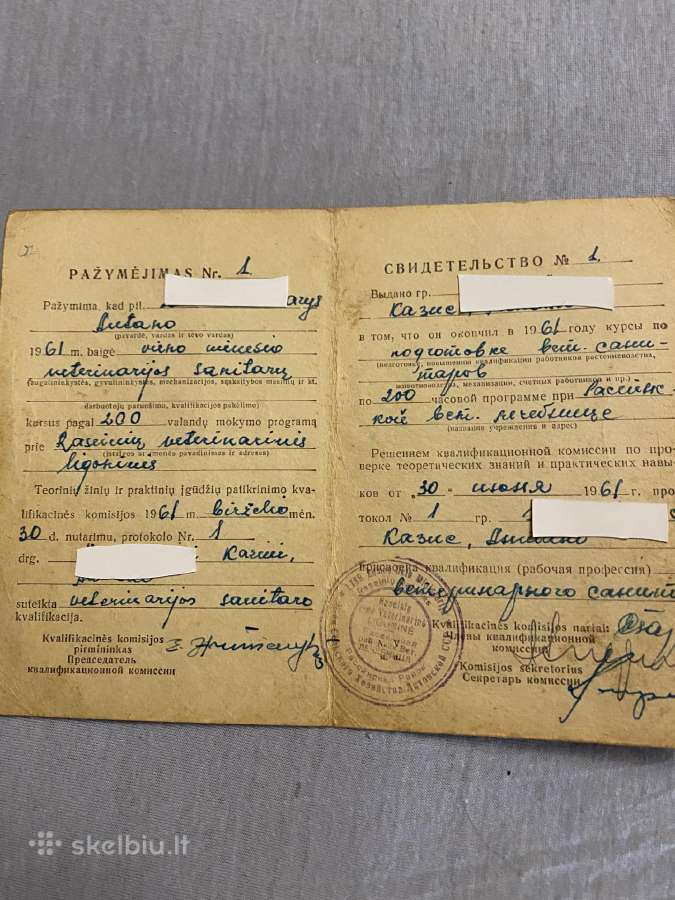 PAŽYMĖJIMAS Nr. 1
Pažymima, kad pil.
Antano
(pavardė, vardas ir tėvo vardas)
1961 m. baigė vieno mėnesio
veterinarijos sanitarų
(augalininkystės, gyvulininkystės, mechanizacijos, sąskaitybos masinių ir kt.
darbuotojų paruošimo, kvalifikacijos pakėlimo)
kursus pagal 200 valandų mokymo programą
prie Raseinių veterinarinės
ligoninės
(įstaigos ar įmonės pavadinimas ir adresas)
Teorinių žinių ir praktinių įgūdžių patikrinimo kva-
lifikacinės komisijos 1961 m. birželio mėn.
30 d. nutarimu, protokolo Nr. 1
drg. Kaziui,
suteikta veterinarijos sanitaro
kvalifikacija.
Kvalifikacinės komisijos
pirmininkas
Председатель
квалификационной комиссии
СВИДЕТЕЛЬСТВО № 1
Выдано гр.
Казис,
в том, что он окончил в 1961 году курсы по
подготовке вет. сани-
таров
(подготовка, повышения квалификации работников растениеводства,
животноводства, механизации, счетных работников и пр.)
по 200 часовой программе при Расейнс-
кой вет. лечебнице
(название учреждения и адрес)
Решением квалификационной комиссии по про-
верке теоретических знаний и практических навы-
ков от "30" июня 1961 г. про-
токол № 1 гр.
Казис,
присвоена квалификация (рабочая профессия)
ветеринарного санит
Kvalifikacinės komisijos nariai:
Члены квалификационной
комиссии
Komisijos sekretorius
Секретарь комиссии
skelbiu.lt